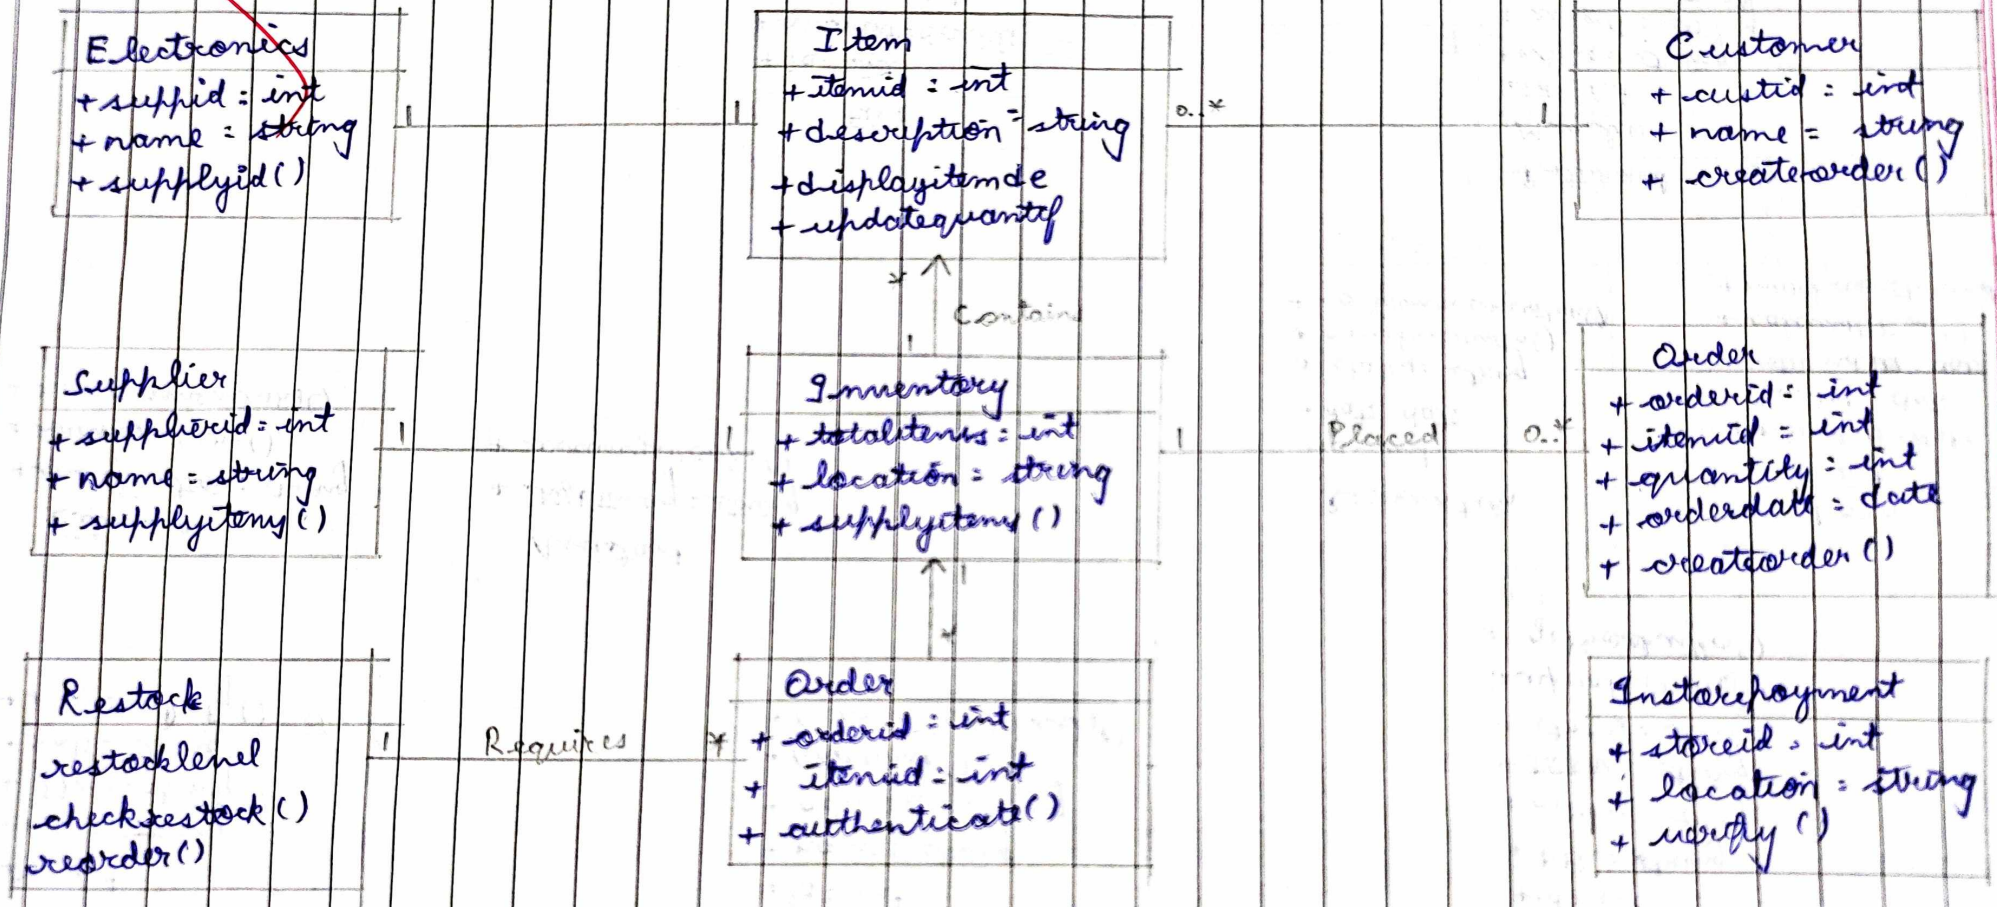 Electronics
+ suppid : int
+ name = string
+ supplyid()
1
1
Item
+ itemid : int
+ description = string
+ displayitemde
+ updatequantif
0..*
1
Customer
+ custid : int
+ name = string
+ createorder()
*
Contain
1
Supplier
+ supplierid : int
+ name = string
+ supplyitemy()
1
1
Inventory
+ totalitems : int
+ location = string
+ supplyitemy()
1
Placed
0..*
Order
+ orderid = int
+ itemid = int
+ quantity : int
+ orderdate : date
+ createorder()
1
*
Restock
restocklevel
checkrestock()
reorder()
1
Requires
*
Order
+ orderid : int
+ itemid = int
+ authenticate()
Instorepayment
+ storeid = int
+ location : string
+ verify()